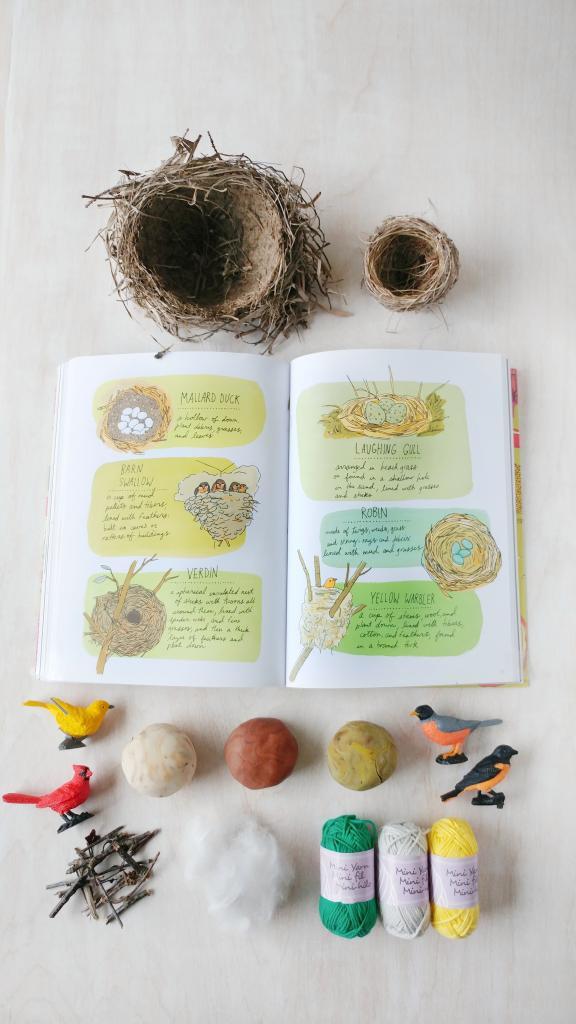 MALLARD DUCK
a hollow of down,
plant debris, grasses,
and leaves
BARN
SWALLOW
a cup of mud
pellets and fibers,
lined with feathers.
built in caves or
rafters of buildings
VERDIN
a spherical enclosed nest
of sticks with thorns all
around them, lined with
spider webs and tiny
grasses, and then a thick
layer of feathers and
plant down
LAUGHING GULL
arranged in beach grass
or found in a shallow hole
in the sand, lined with grasses
and sticks
ROBIN
made of twigs, weeds, grass
and string, rags and pieces
lined with mud and grasses
YELLOW WARBLER
a cup of stems, wool, and
plant down, lined with fibers,
cotton, and feathers, found
in a fork
Mini Yarn
Mini fil
Mini hilo
Mini Yarn
Mini
Mini
Mini
Mini
Mini